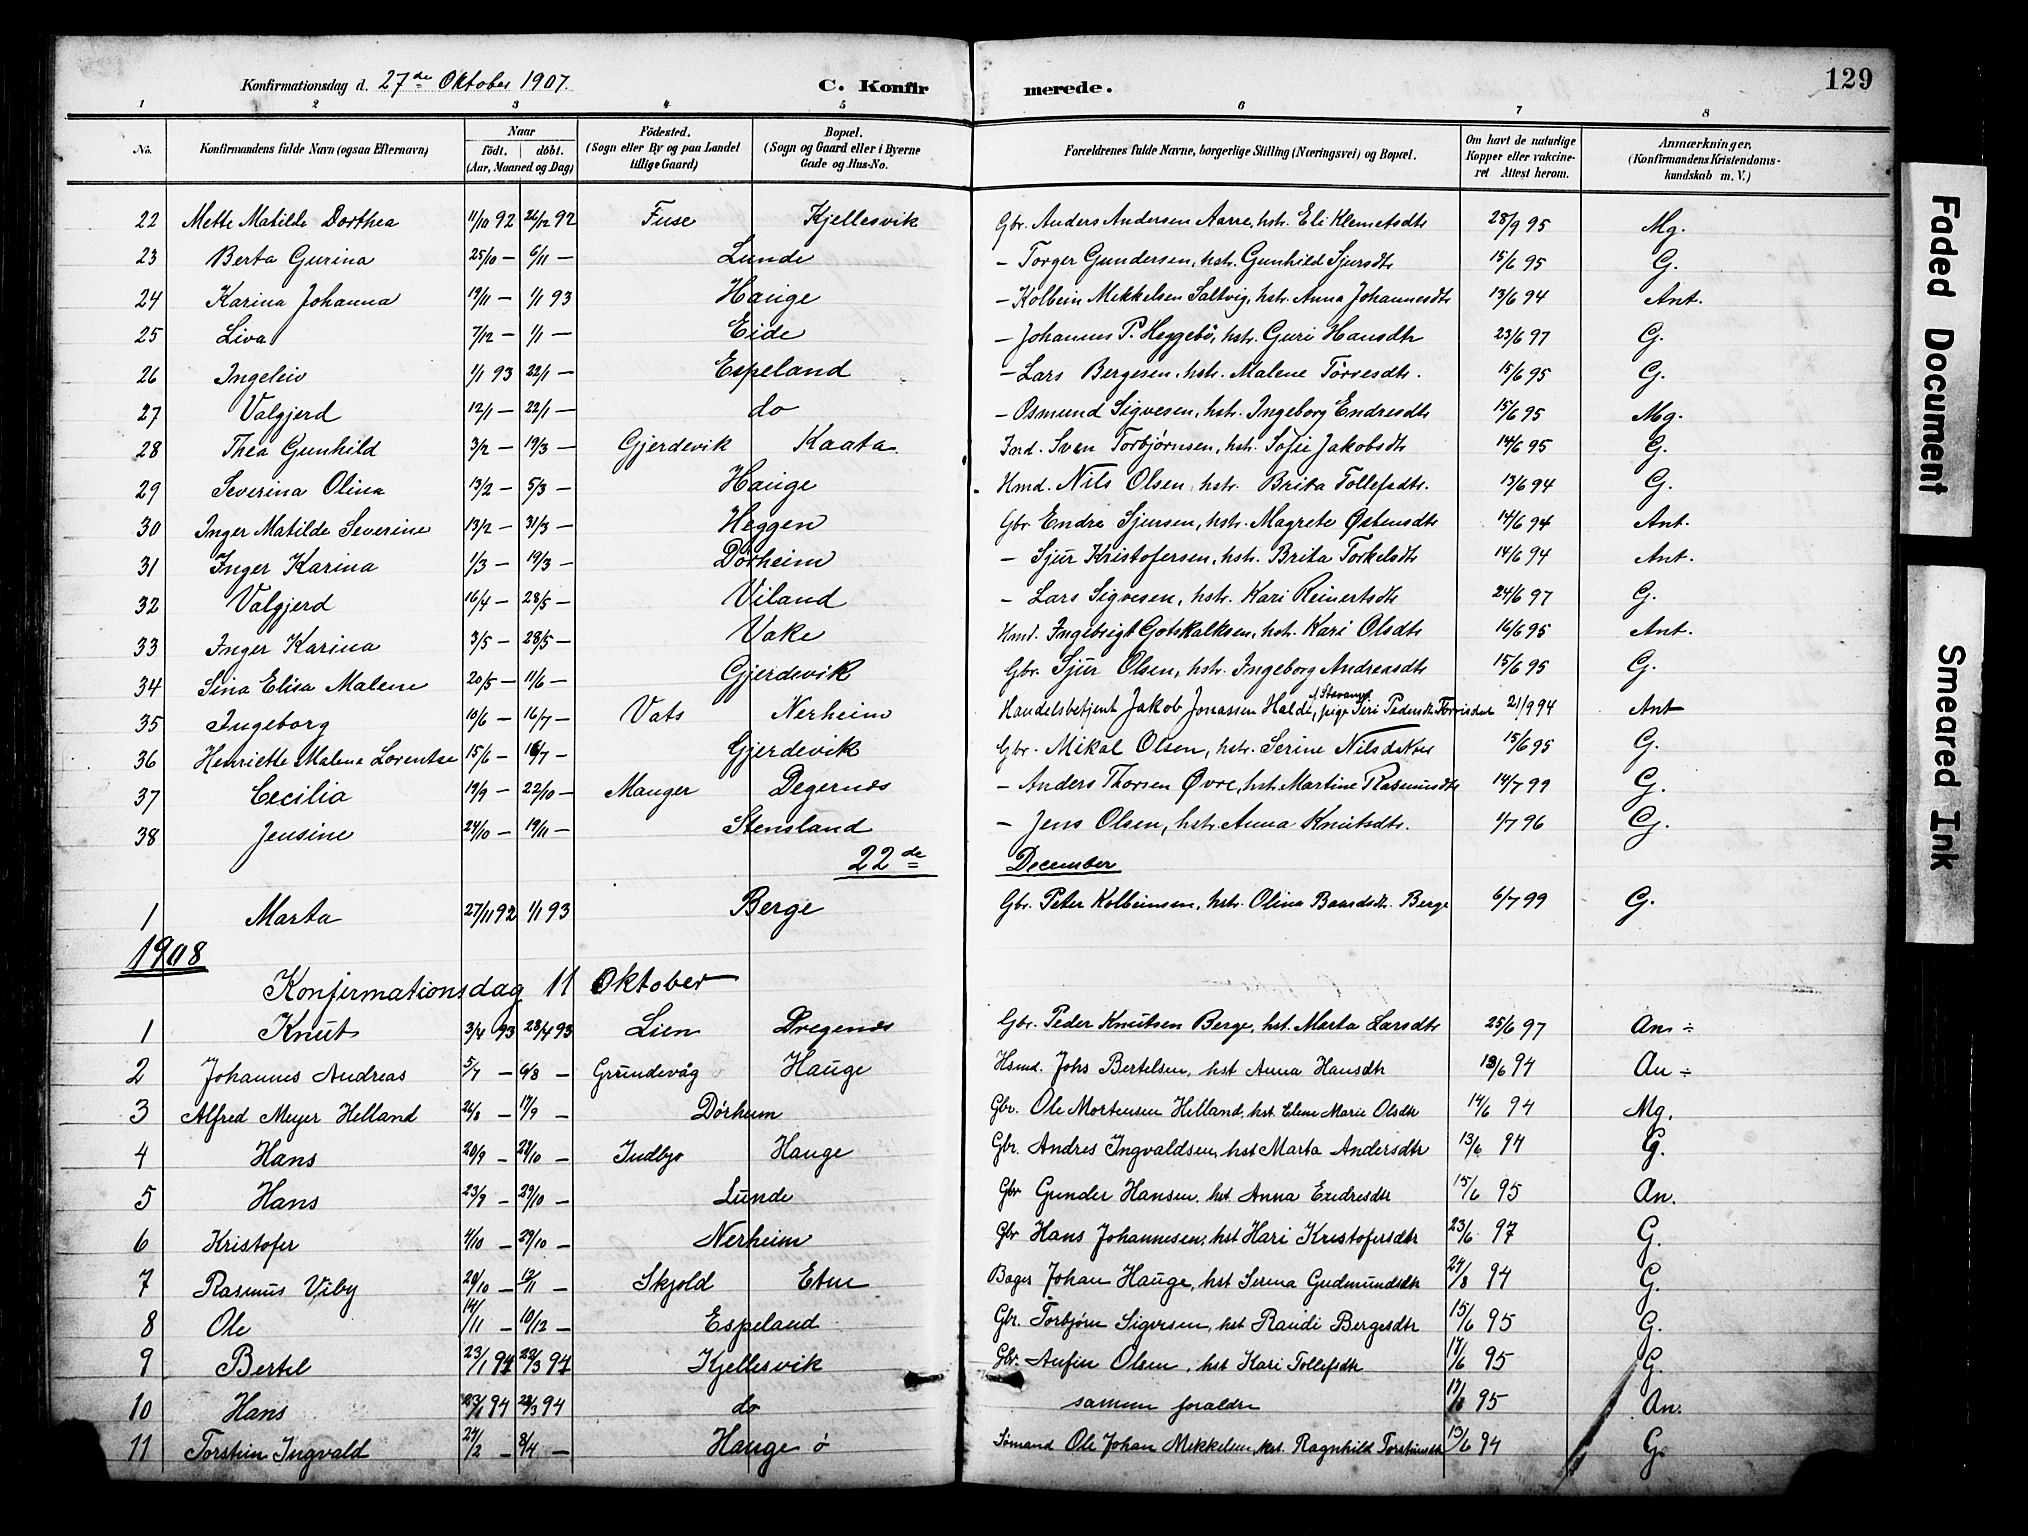 Konfirmationsdag d. 27de Oktober 1907. C. Konfirmerede. 129
1 2 3 4 5 6 7 8
No. Konfirmandens fulde Navn (ogsaa Efternavn) Naar født. døbt. (Aar, Maaned og Dag) Födested. (Sogn eller By og paa Landet tillige Gaard) Bopæl. (Sogn og Gaard eller i Byerne Gade og Hus-No. Forældrenes fulde Navne, borgerlige Stilling (Næringsvei) og Bopæl. Om havt de naturlige Kopper eller vaccineret Attest herom. Anmærkninger, (Konfirmandens Kristendomskundskab m. V.)
22 Mette Matilde Dorthea 11/10 92 26/12 92 Fuse Kjellesvik Gbr. Anders Andersen Aarre, hstr. Eli Klemetsdtr 28/9 95 Mg.
23 Berta Gurina 25/10 — 6/11 — Lunde — Torger Gundersen, hstr. Gunhild Sjursdtr 15/6 95 G.
24 Karina Johanna 19/11 — 1/1 93 Hauge — Kolbein Mikkelsen Saltvig, hstr. Anna Johannesdtr 13/6 94 Ant.
25 Liva 7/12 — 1/1 — Eide — Johannes P. Heggebø, hstr. Guri Hansdtr 23/6 97 G.
26 Ingeleiv 1/1 93 22/1 — Espeland — Lars Bergesen, hstr. Malene Tørresdtr. 15/6 95 G.
27 Valgjerd 12/1 — 22/1 — do — Osmund Sigvesen, hstr. Ingeborg Endresdtr 15/6 95 Mg.
28 Thea Gunhild 3/2 — 19/3 — Gjerdevik Kaata. Ind. Sven Torbjørnsen, hstr. Sofie Jakobsdtr 14/6 95 G.
29 Severina Olina 13/2 — 5/3 — Hauge Hmd. Nils Olsen, hstr. Brita Tollefsdtr. 13/6 94 G.
30 Inger Matilde Severine 13/2 — 31/3 — Heggen Gbr. Endre Sjursen, hstr. Magrete Østensdtr 14/6 94 Ant.
31 Inger Karina 1/3 — 19/3 — Dørheim — Sjur Kristofersen, hstr. Brita Torkelsdtr 14/6 94 Ant.
32 Valgjerd 16/4 — 28/5 — Viland — Lars Sigvesen, hstr. Kari Reinertsdtr 24/6 97 G.
33 Inger Karina 3/5 — 28/5 — Vake Hmd. Ingebrigt Gotskalksen, hstr. Kari Olsdtr 16/6 95 Ant.
34 Sina Elisa Malene 20/5 — 11/6 — Gjerdevik Gbr. Sjur Olsen, hstr. Ingeborg Andreasdtr 15/6 95 G.
35 Ingeborg 10/6 — 16/7 — Vats Nerheim Handelsbetjent Jakob Jonassen Haldi, pige Siri Pedersdtr 21/9 94 Ant
36 Henriette Malena Lorentse 15/6 — 16/7 — Gjerdevik Gbr. Mikal Olsen, hstr. Serine Nilsdatter 15/6 95 G.
37 Cecilia 19/9 — 22/10 — Manger Degernes — Anders Thorsen Øvre, hstr. Martine Rasmusdtr 14/7 99 G.
38 Jensine 24/10 — 19/11 — Stensland — Jens Olsen, hstr. Anna Knutsdtr. 1/7 96 G.
22de December
1 Marta 27/11 92 1/1 93 Berge Gbr. Peter Kolbeinsen, hstr. Olina Baardsdtr. Berge 6/7 99 G.
1908
Konfirmationsdag 11 Oktober
1 Knut 3/4 93 23/4 93 Lien Dregenes Gbr. Peder Knutsen Berge, hst. Marta Larsdtr 25/6 97 An ÷
2 Johannes Andreas 5/7 — 6/8 — Grundevåg Hauge Hsmd. Johs Bertelsen, hst Anna Hansdtr 13/6 94 An ÷
3 Alfred Meyer Helland 26/8 — 17/9 — Dørheim Gbr. Ole Mortensen Helland, hst. Elene Marie Olsdtr 14/6 94 Mg.
4 Hans 20/9 — 29/10 — Indbjo Hauge Gbr. Andres Ingvaldsen, hst Marta Andersdtr 13/6 94 G.
5 Hans 23/9 — 29/10 — Lunde Gbr Gunder Hansen, hst. Anna Endresdtr 15/6 95 An.
6 Kristofer 4/10 — 29/10 — Nerheim Gbr Hans Johannesen, hst Kari Kristofersdtr 23/6 97 G.
7 Rasmus Viby 20/10 — 12/11 — Skjold Etne Bager Johan Hauge, hst Serina Gudmundsdtr 24/8 94 G.
8 Ole 14/11 — 10/12 — Espeland Gbr. Torbjørn Sigvesen, hst Randi Bergesdtr 15/6 95 G.
9 Bertel 23/1 94 22/3 94 Kjellesvik Gbr. Anfin Olsen, hst Kari Tollefsdtr 17/6 95 G.
10 Hans 23/1 94 22/3 94 do samme foraldre 17/6 95 An.
11 Torstein Ingvald 24/2 — 8/4 — Hauge ö Sømand Ole Johan Mikkelsen, hst. Ragnhild Torsteinsdtr 13/6 94 G.
Faded Document
Smeared Ink